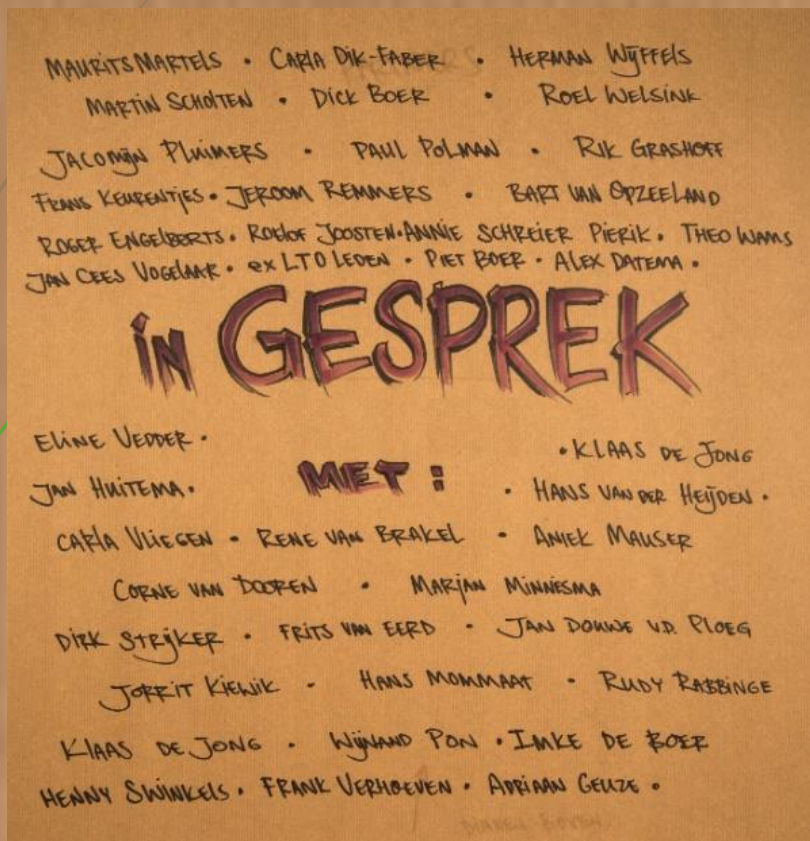 MAURITS MARTELS • CARLA DIK-FABER • HERMAN WIJFFELS
MARTIN SCHOLTEN • DICK BOER • ROEL WELSINK
JACOMIJN PLUIMERS • PAUL POLMAN • RIK GRASHOFF
FRANS KEURENTJES • JEROOM REMMERS • BART VAN OPZEELAND
ROGER ENGELBERTS • ROELOF JOOSTEN • ANNIE SCHREIER PIERIK • THEO WAMS
JAN CEES VOGELAAR • ex LTO LEDEN • PIET BOER • ALEX DATEMA •
in GESPREK
ELINE VEDDER •
• KLAAS DE JONG
MET :
JAN HUITEMA •
• HANS VAN DER HEIJDEN •
CARLA VLIEGEN • RENE VAN BRAKEL • ANIEK MAUSER
CORNE VAN DOOREN • MARJAN MINNESMA
DIRK STRIJKER • FRITS VAN EERD • JAN DOUWE V.D. PLOEG
JORRIT KIEWIK • HANS MOMMAAT • RUDY RABBINGE
KLAAS DE JONG • WIJNAND PON • IMKE DE BOER
HENNY SWINKELS • FRANK VERHOEVEN • ADRIAAN GEUZE •